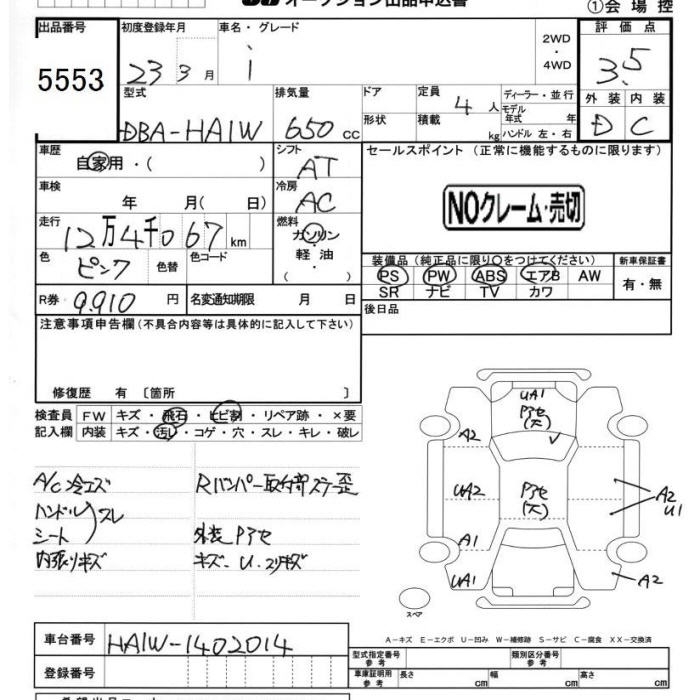 オークション出品申込書
①会場控
出品番号 初度登録年月 車名・グレード 2WD・4WD 評価点
5553 23年3月 i 3.5
型式 排気量 ドア 定員 ディーラー・並行 外装 内装
DBA-HA1W 650cc 形状 4人 積載 kg モデル年式 年 ハンドル 左・右 D C
車歴 シフト セールスポイント (正常に機能するものに限ります)
自家用・( ) AT
車検 冷房
年 月( 日) AC NOクレーム・売切
走行 燃料
12万4千067km ガソリン・軽油・( )
色 色替 色コード 装備品(純正品に限り○をつけてください) 新車保証書
ピンク PS PW ABS エアB AW 有・無
R券 9.910円 名変通知期限 月 日 SR ナビ TV カワ
注意事項申告欄(不具合内容等は具体的に記入して下さい) 後日品
修復歴 有 〔箇所 〕
検査員 FW キズ・飛石・ヒビ割・リペア跡・×要
記入欄 内装 キズ・汚レ・コゲ・穴・スレ・キレ・破レ
A/C冷エズ Rバンパー取付部ステー歪
ハンドル
シート スレ 外装Pアセ
内張りキズ キズ-U.スリキズ
UA1
Pアセ
(大)
A2
UA2 Pアセ A2
(大) U1
A1
UA1 A2
スペア
A-キズ E-エクボ U-凹み W-補修跡 S-サビ C-腐食 XX-交換済
車台番号 HA1W-1402014
型式指定番号 参考 類別区分番号 参考
登録番号 車庫証明用 参考 長さ cm 幅 cm 高さ cm